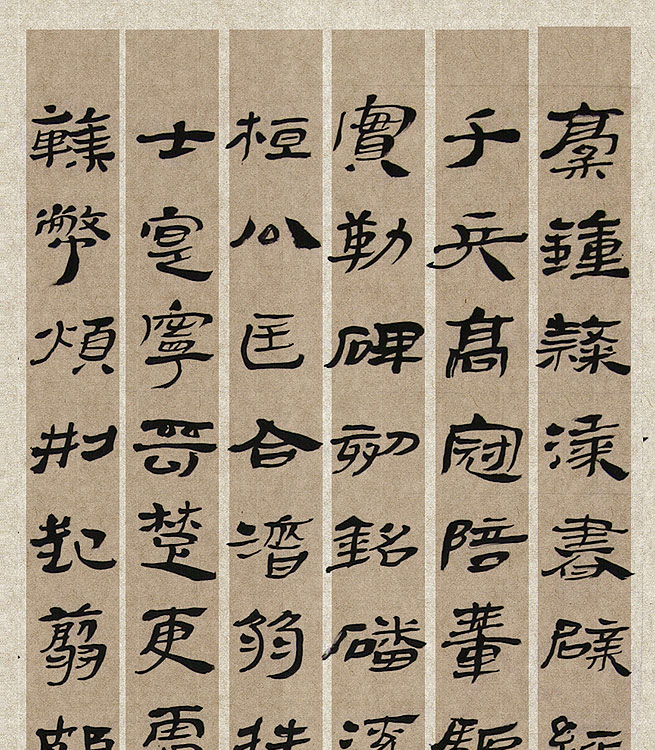 稾鍾隸漆書壁經
千兵高冠陪輦驅
實勒碑刻銘磻溪
桓公匡合濟弱扶
士寔寧晉楚更霸
韓弊煩刑起翦頗